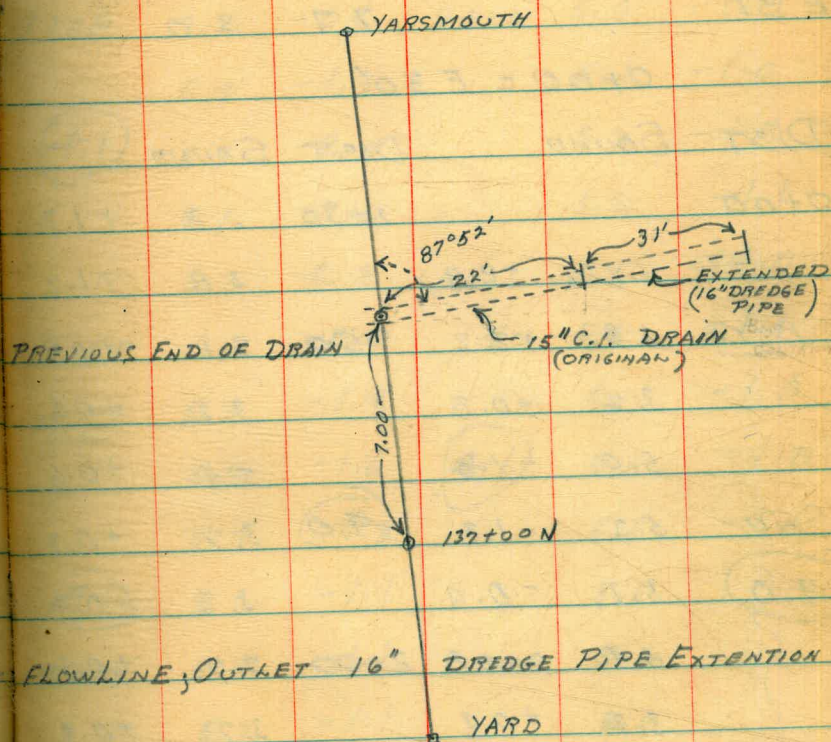 YARSMOUTH
87°52'
31'
22'
EXTENDED
(16" DREDGE
PIPE)
15" C.I. DRAIN
(ORIGINAL)
PREVIOUS END OF DRAIN
7.00
137+00 N
FLOWLINE; OUTLET 16" DREDGE PIPE EXTENTION
YARD